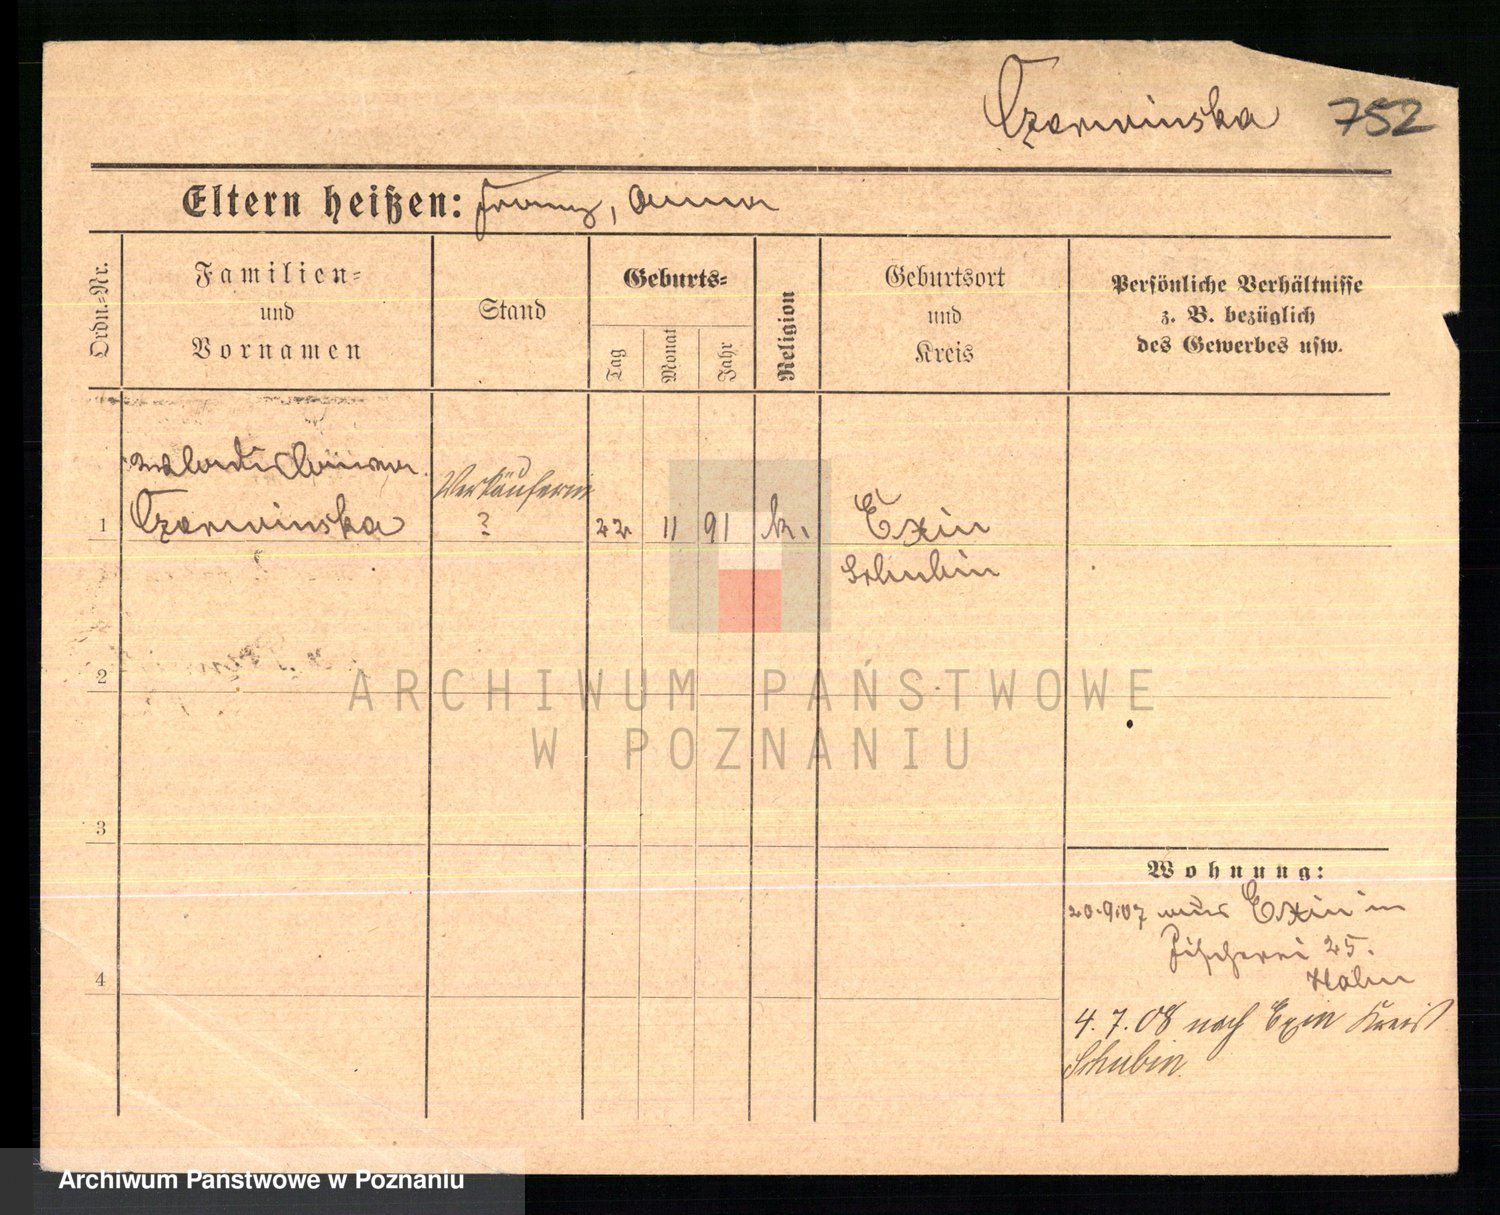 Czerwinska 752
Eltern heißen: Franz, Anna
Ordn.-Nr.
Familien-
und
Vornamen
Stand
Geburts-
Tag
Monat
Jahr
Religion
Geburtsort
und
Kreis
Persönliche Verhältnisse
z. B. bezüglich
des Gewerbes usw.
Verkäuferin
1 Czerwinska ? 22 11 91 k. Exin
Schubin
2
3
4
Wohnung:
20.9.07 aus Exin in
Fischerei 25.
Hahn
4.7.08 nach Exin Kreis
Schubin.
ARCHIWUM PAŃSTWOWE
W POZNANIU
Archiwum Państwowe w Poznaniu